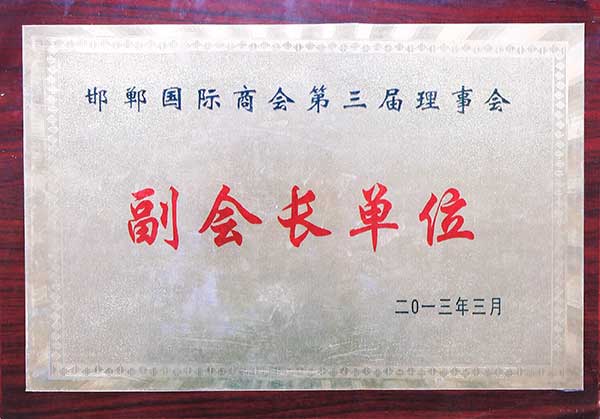 邯郸国际商会第三届理事会
副会长单位
二0一三年三月